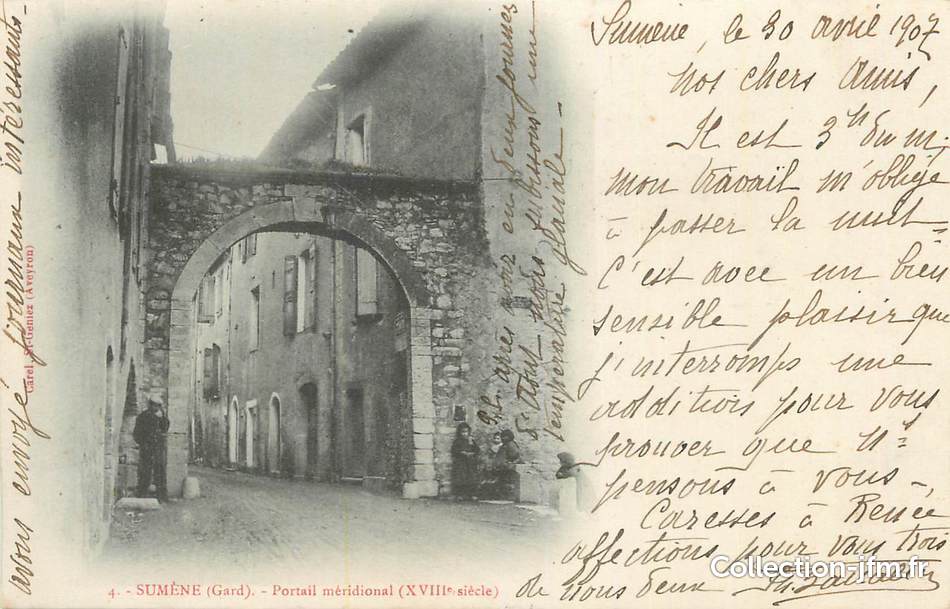 Sumène, le 30 avril 1907
Nos chers Amis,
Il est 3h du m.
mon travail m'oblige
à passer la nuit
C'est avec un bien
sensible plaisir que
j'interromps une
addition pour vous
prouver que ns
pensons à vous -
Caresses à Renée
affections pour vous trois
de nous deux
P.S. après avoir eu deux journées
d'août, nous subissons une
température glaciale -
avons envoyé journaux intéressants -
Carel, St-Geniez (Aveyron)
4. - SUMÈNE (Gard). - Portail méridional (XVIIIe siècle)
Collection-jfm.fr